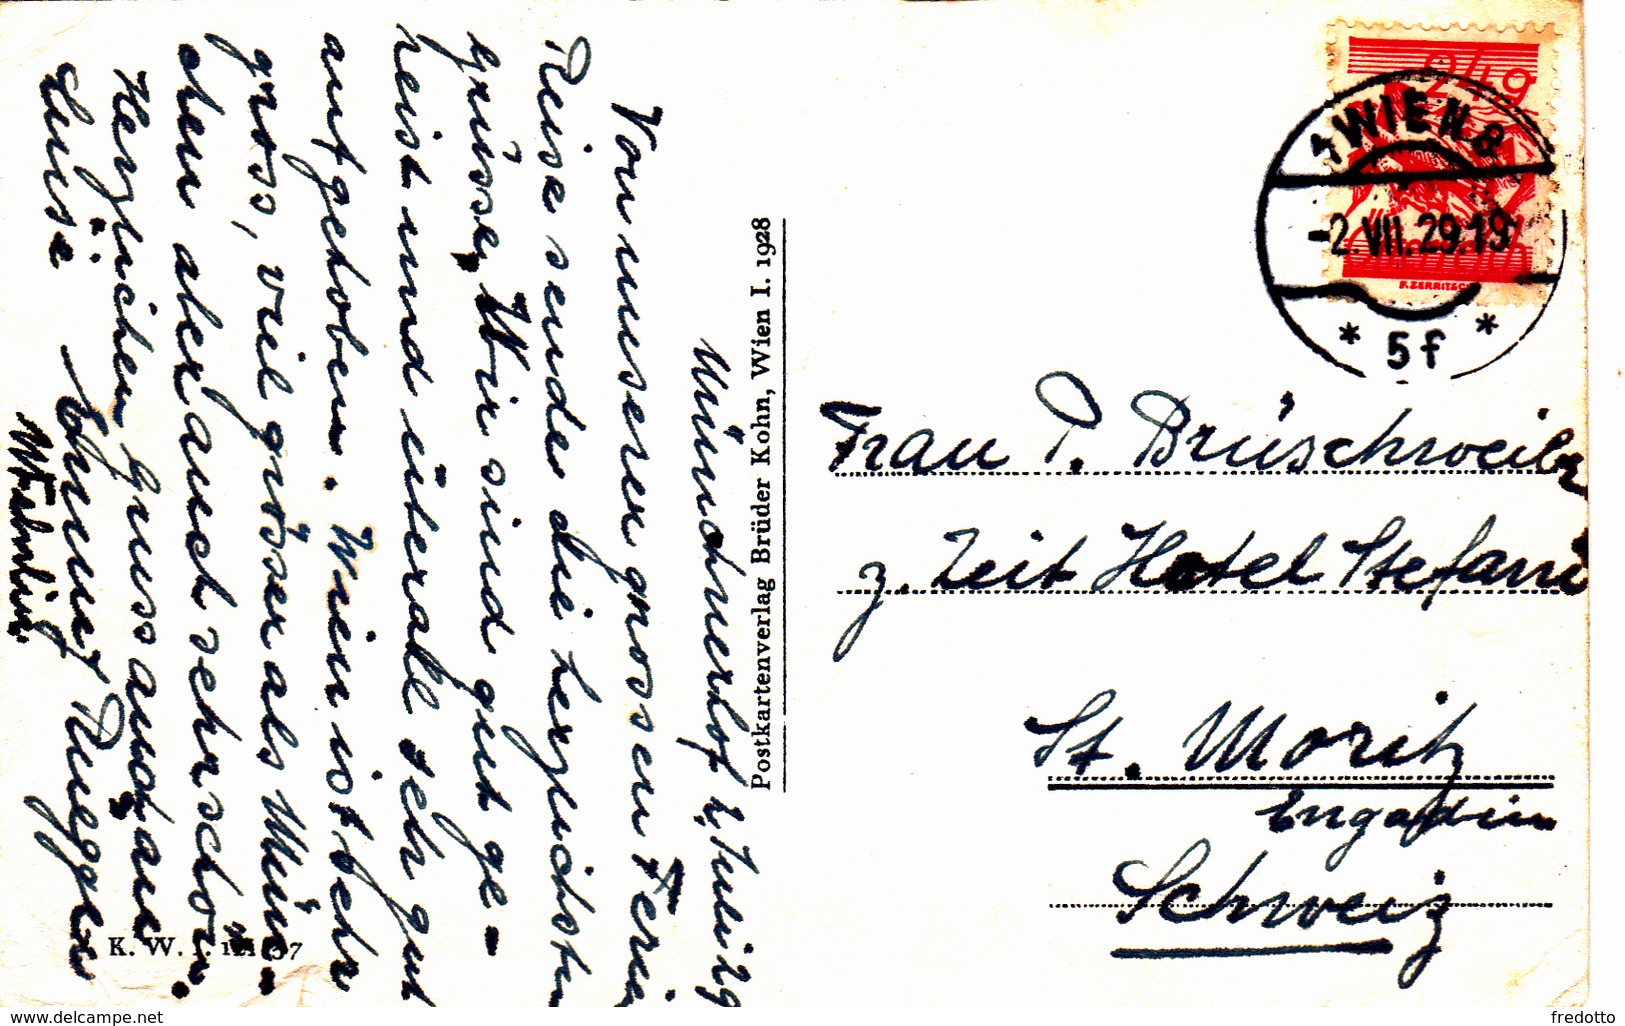 Münchnerhof 2. Juli 29
Von unseren grossen Ferien
Reise sende die herzlichsten
Grüsse. Wir sind gut ge-
reist und überall sehr gut
aufgehoben. Wien ist sehr
gross, viel grösser als Mün-
chen aber auch sehr schön.
Herzlichen Gruss auch an
Luise Ruegger
Postkartenverlag Brüder Kohn, Wien I. 1928
K. W. I.
24 g
1 WIEN 8
-2.VII.29.19
* 5f *
Österreich
F. ZERRITSCH
Frau P. Brüschweiler
z. Zeit Hotel Stefani
St. Moritz
Engadin
Schweiz
www.delcampe.net
fredotto